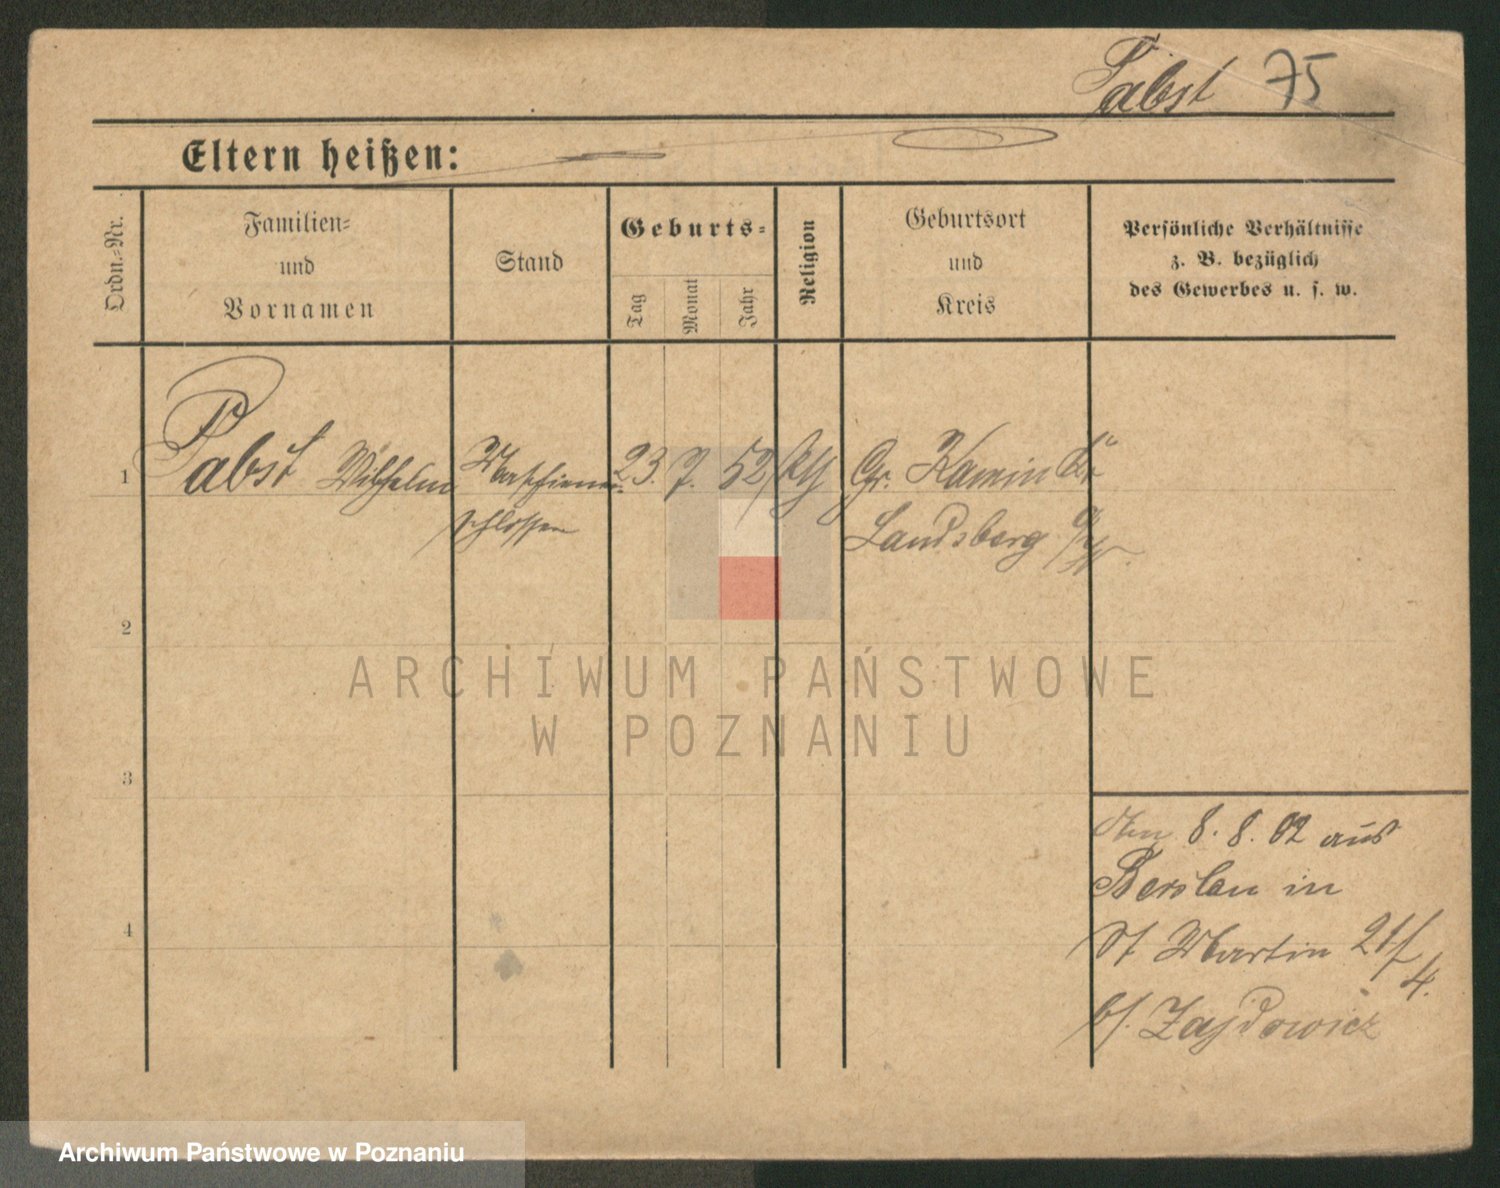 Pabst 75
Eltern heißen:
Ordn.-Nr.
Familien-
und
Vornamen
Stand
Geburts-
Tag
Monat
Jahr
Religion
Geburtsort
und
Kreis
Persönliche Verhältnisse
z. B. bezüglich
des Gewerbes u. s. w.
1
Pabst Wilhelm
Maschinen-
schlosser
23. 7. 52
Gr. Kamin Kr
Landsberg a/W.
2
ARCHIWUM PAŃSTWOWE
W POZNANIU
3
8. 8. 02 aus
in
4
St Martin
b/. Zajdowicz
Archiwum Państwowe w Poznaniu